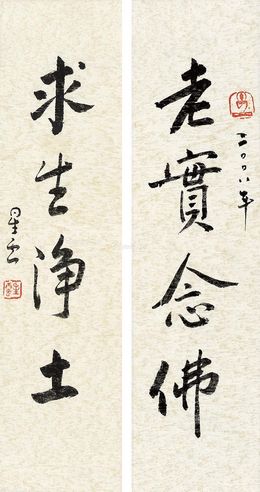 老實念佛
二〇〇八年
求生淨土
星雲